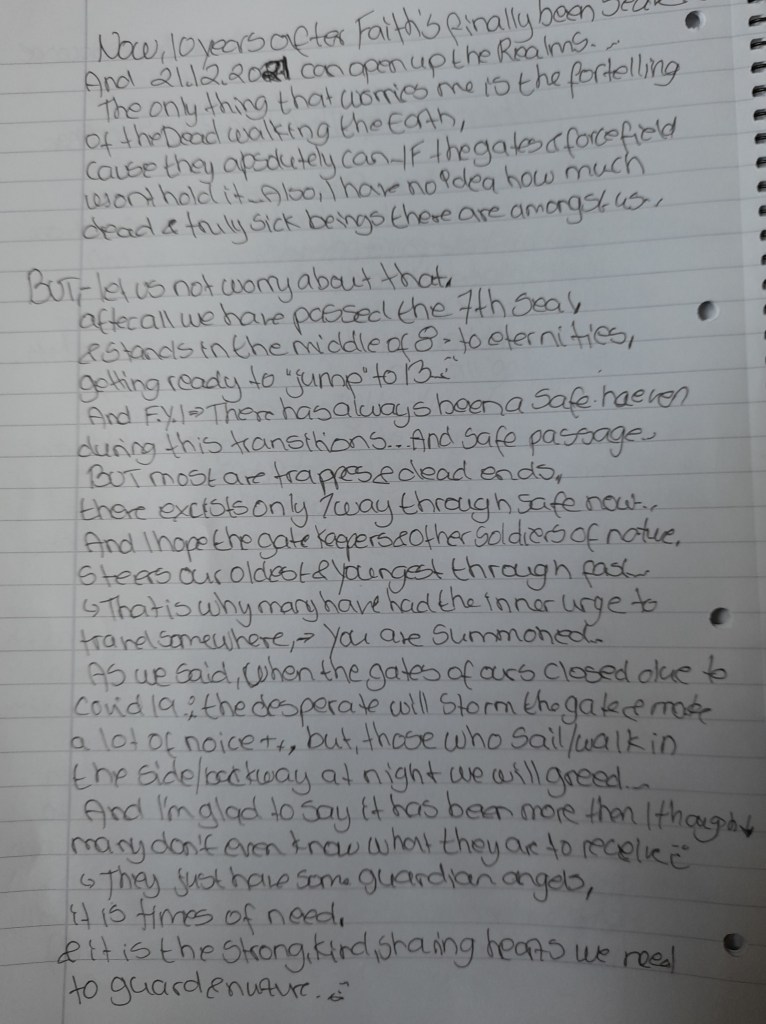 Now, 10 years after Faith's finally been
And 21.12.2021 can open up the Realms..
The only thing that worries me is the fortelling
of the Dead walking the Earth,
cause they apsolutely can-IF the gates & forcefield
wont hold it. Also, I have no idea how much
dead & truly sick beings there are amongst us.
BUT,- let us not worry about that,
after all we have passed the 7th seal,
& stands in the middle of 8 - to eternities,
getting ready to "jump" to 13..
And F.Y.I → There has always been a safe haeven
during this transitions... And safe passage.
BUT most are trappes & dead ends,
there excists only 1 way through safe now..
And I hope the gate keepers & other soldiers of natue,
steers our oldest & youngest through fast
↳ That is why many have had the inner urge to
travel somewhere, → You are summoned.
As we said, when the gates of ours closed due to
covid 19 ; the desperate will storm the gate & make
a lot of noice ++, but, those who sail/walk in
the side/backway at night we will greed...
And I'm glad to say it has been more then I thought
many don't even know what they are to receive
↳ They just have some guardian angels,
it is times of need,
& it is the strong, kind, sharing hearts we need
to guard & nuture..